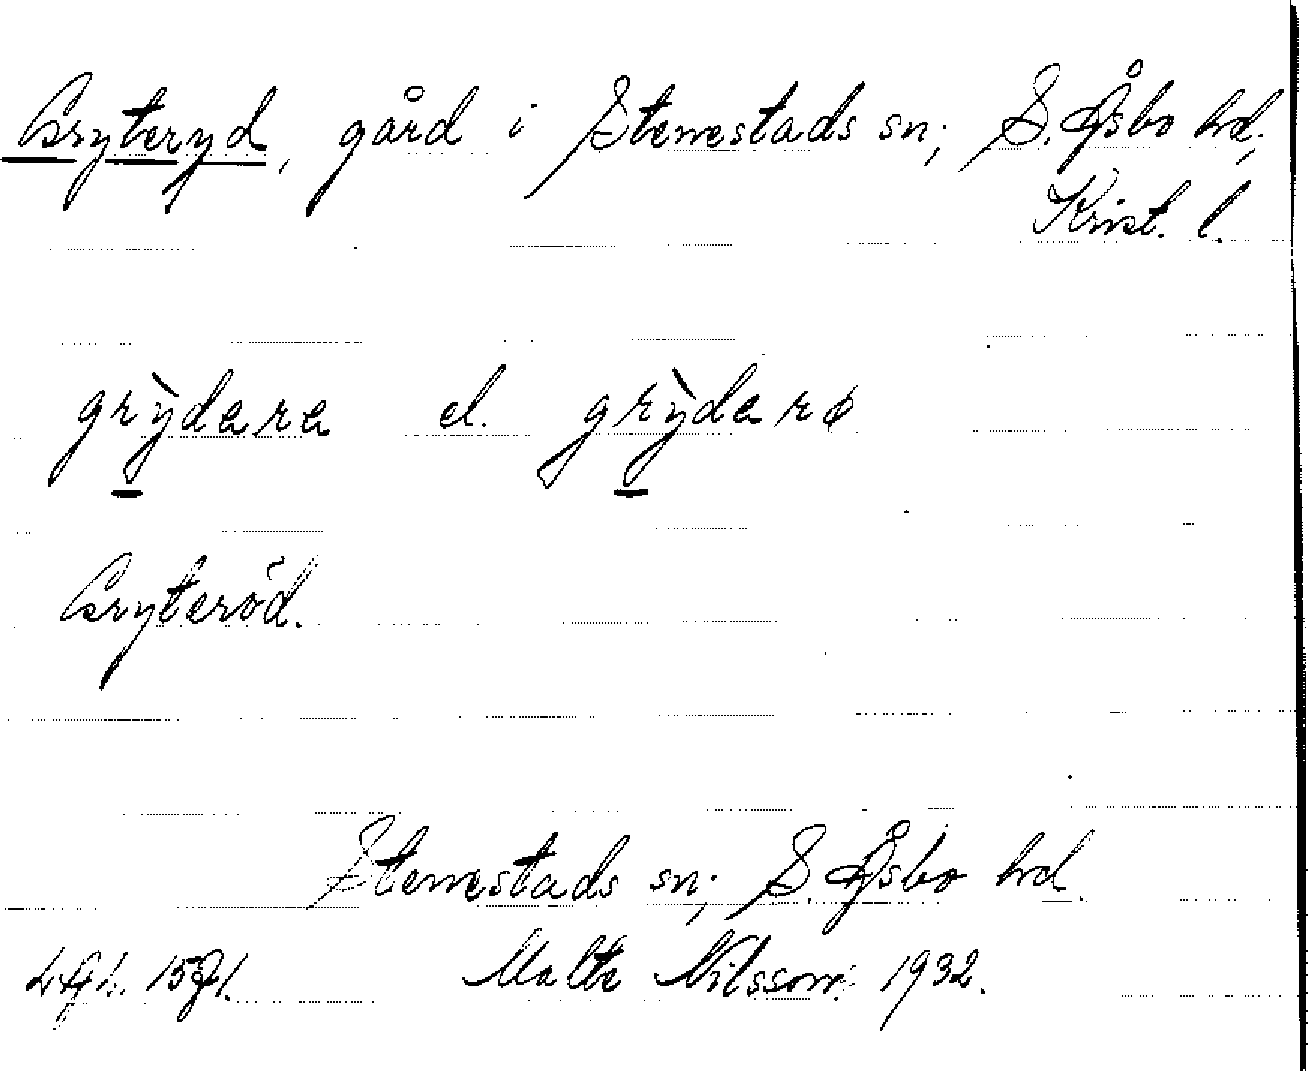 Gryteryd, gård i Stenestads sn; S. Åsbo hd;
Krist. l.
grỳdara el. grỳdarø
Gryteröd.
Stenestads sn; S. Åsbo hd.
Malte Nilsson. 1932.